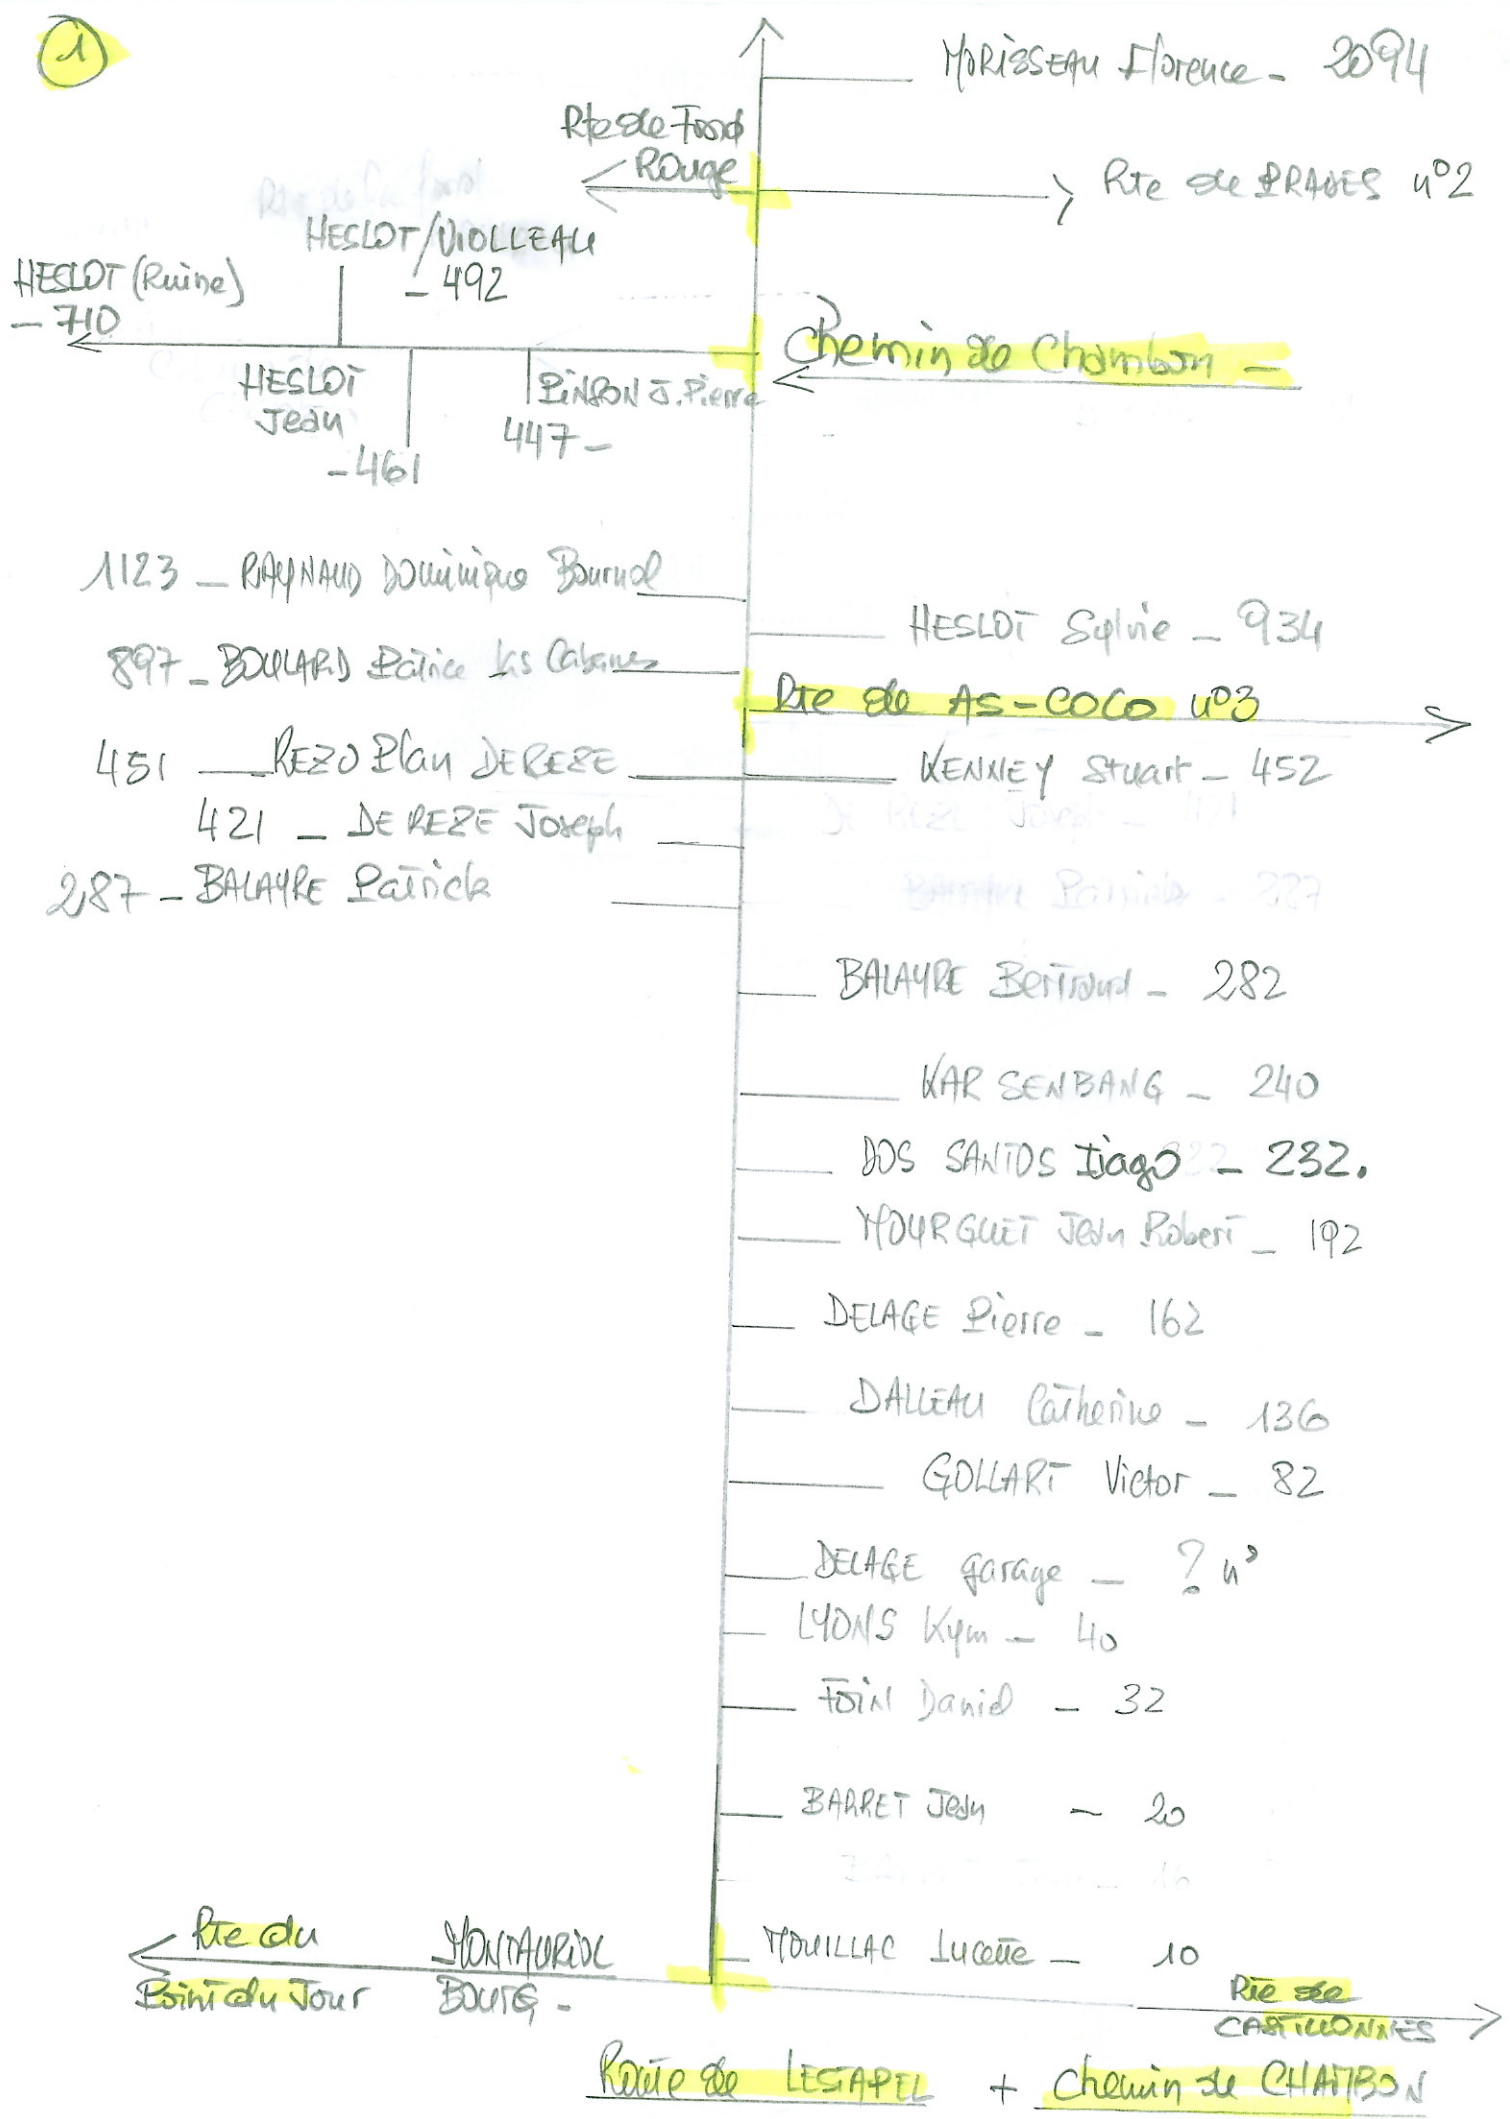 1
MORISSEAU Florence - 2094
Rte de Fond
Rouge
Rte de PRADES n°2
HESLOT/VIOLLEAU
- 492
HESLOT (Ruine)
- 710
Chemin de Chambon -
HESLOT
Jean
- 461
PINSON J. Pierre
447 -
1123 - RAYNAUD Dominique Bournol
HESLOT Sylvie - 934
897 - BOULARD Patrice Las Cabanes
Rte de AS-COCO n°3
451 — REZO Plan DEREZE
KENNEY Stuart - 452
421 - DEREZE Joseph
287 - BALAYRE Patrick
BALAYRE Bertrand - 282
KAR SENBANG - 240
DOS SANTOS Tiago - 232.
MOURGUET Jean Robert - 192
DELAGE Pierre - 162
DALLEAU Catherine - 136
GOLLART Victor - 82
DELAGE garage - ? n°
LYONS Kym - 40
FOIN Daniel - 32
BARRET Jean - 20
MOUILLAC Lucette - 10
Rte du
Point du Jour
MONTAURIOL
BOURG -
Rte de
CASTILLONNES
Route de LESTAPEL + Chemin de CHAMBON